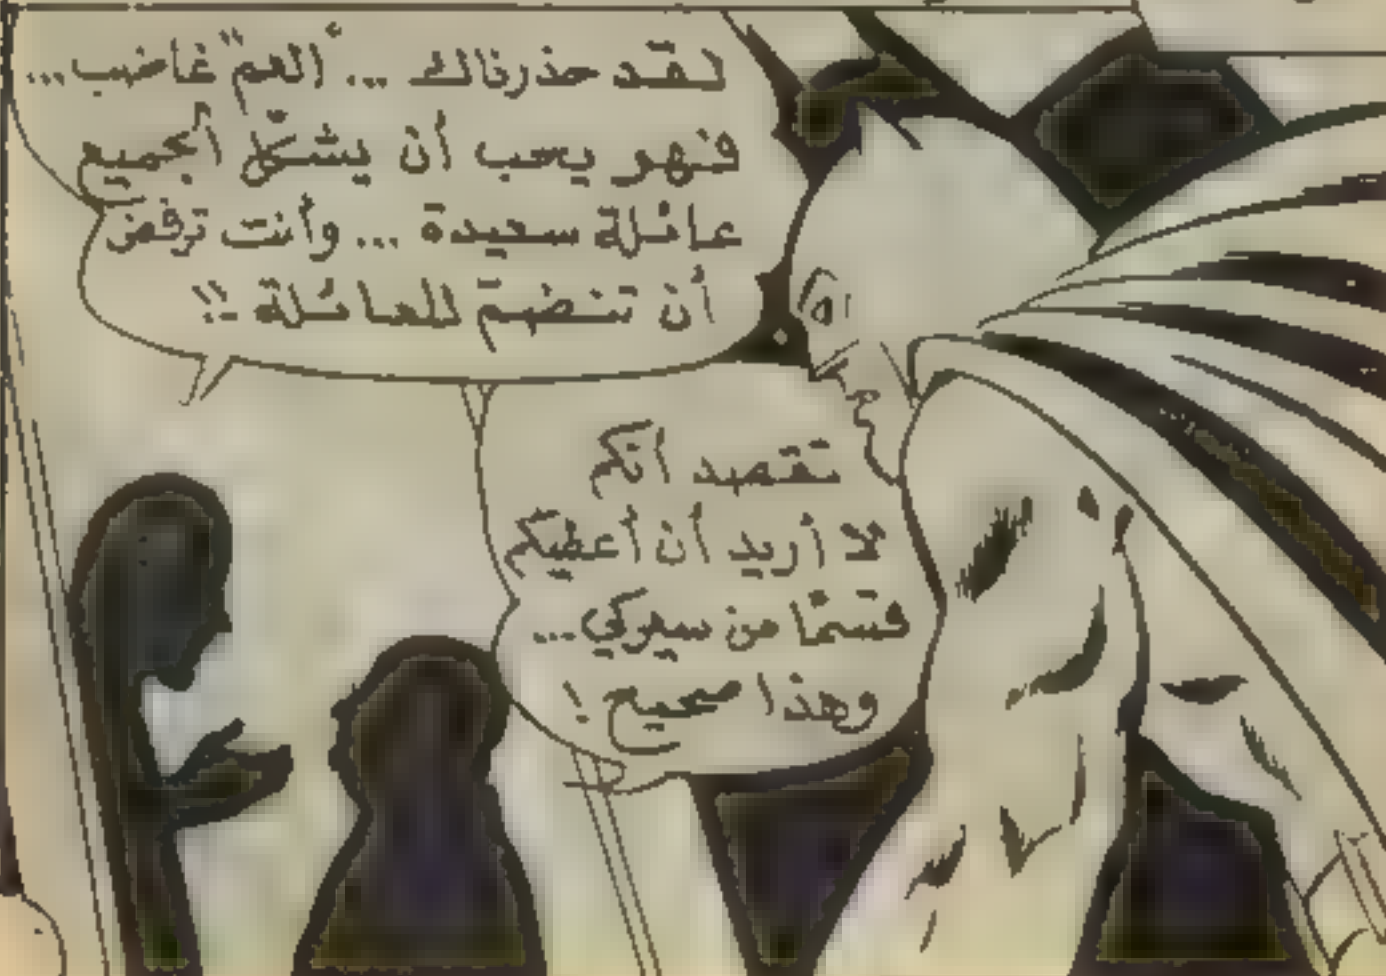 لقد حذرناك ... "العمّ" غاضب ...
فهو يحب أن يشكّل الجميع
عائلة سعيدة ... وأنت ترفض
أن تنضمّ للعائلة !!
تقصد أنكم
لا أريد أن أعطيكم
قسمًا من سيركي ...
وهذا صحيح !